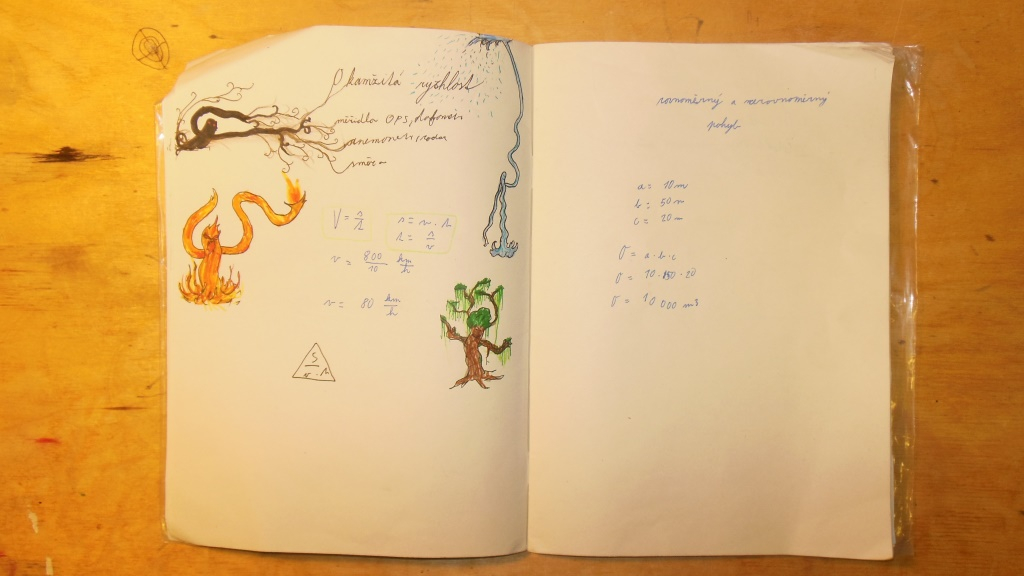 Okamžitá rychlost
měřidla GPS,
V = s/t
s = v · t
t = s/v
v = 800/10 km/h
v = 80 km/h
S
v · t
rovnoměrný a nerovnoměrný
pohyb
a = 10 m
b = 50 m
c = 20 m
V = a · b · c
V = 10 · 50 · 20
V = 10 000 m3